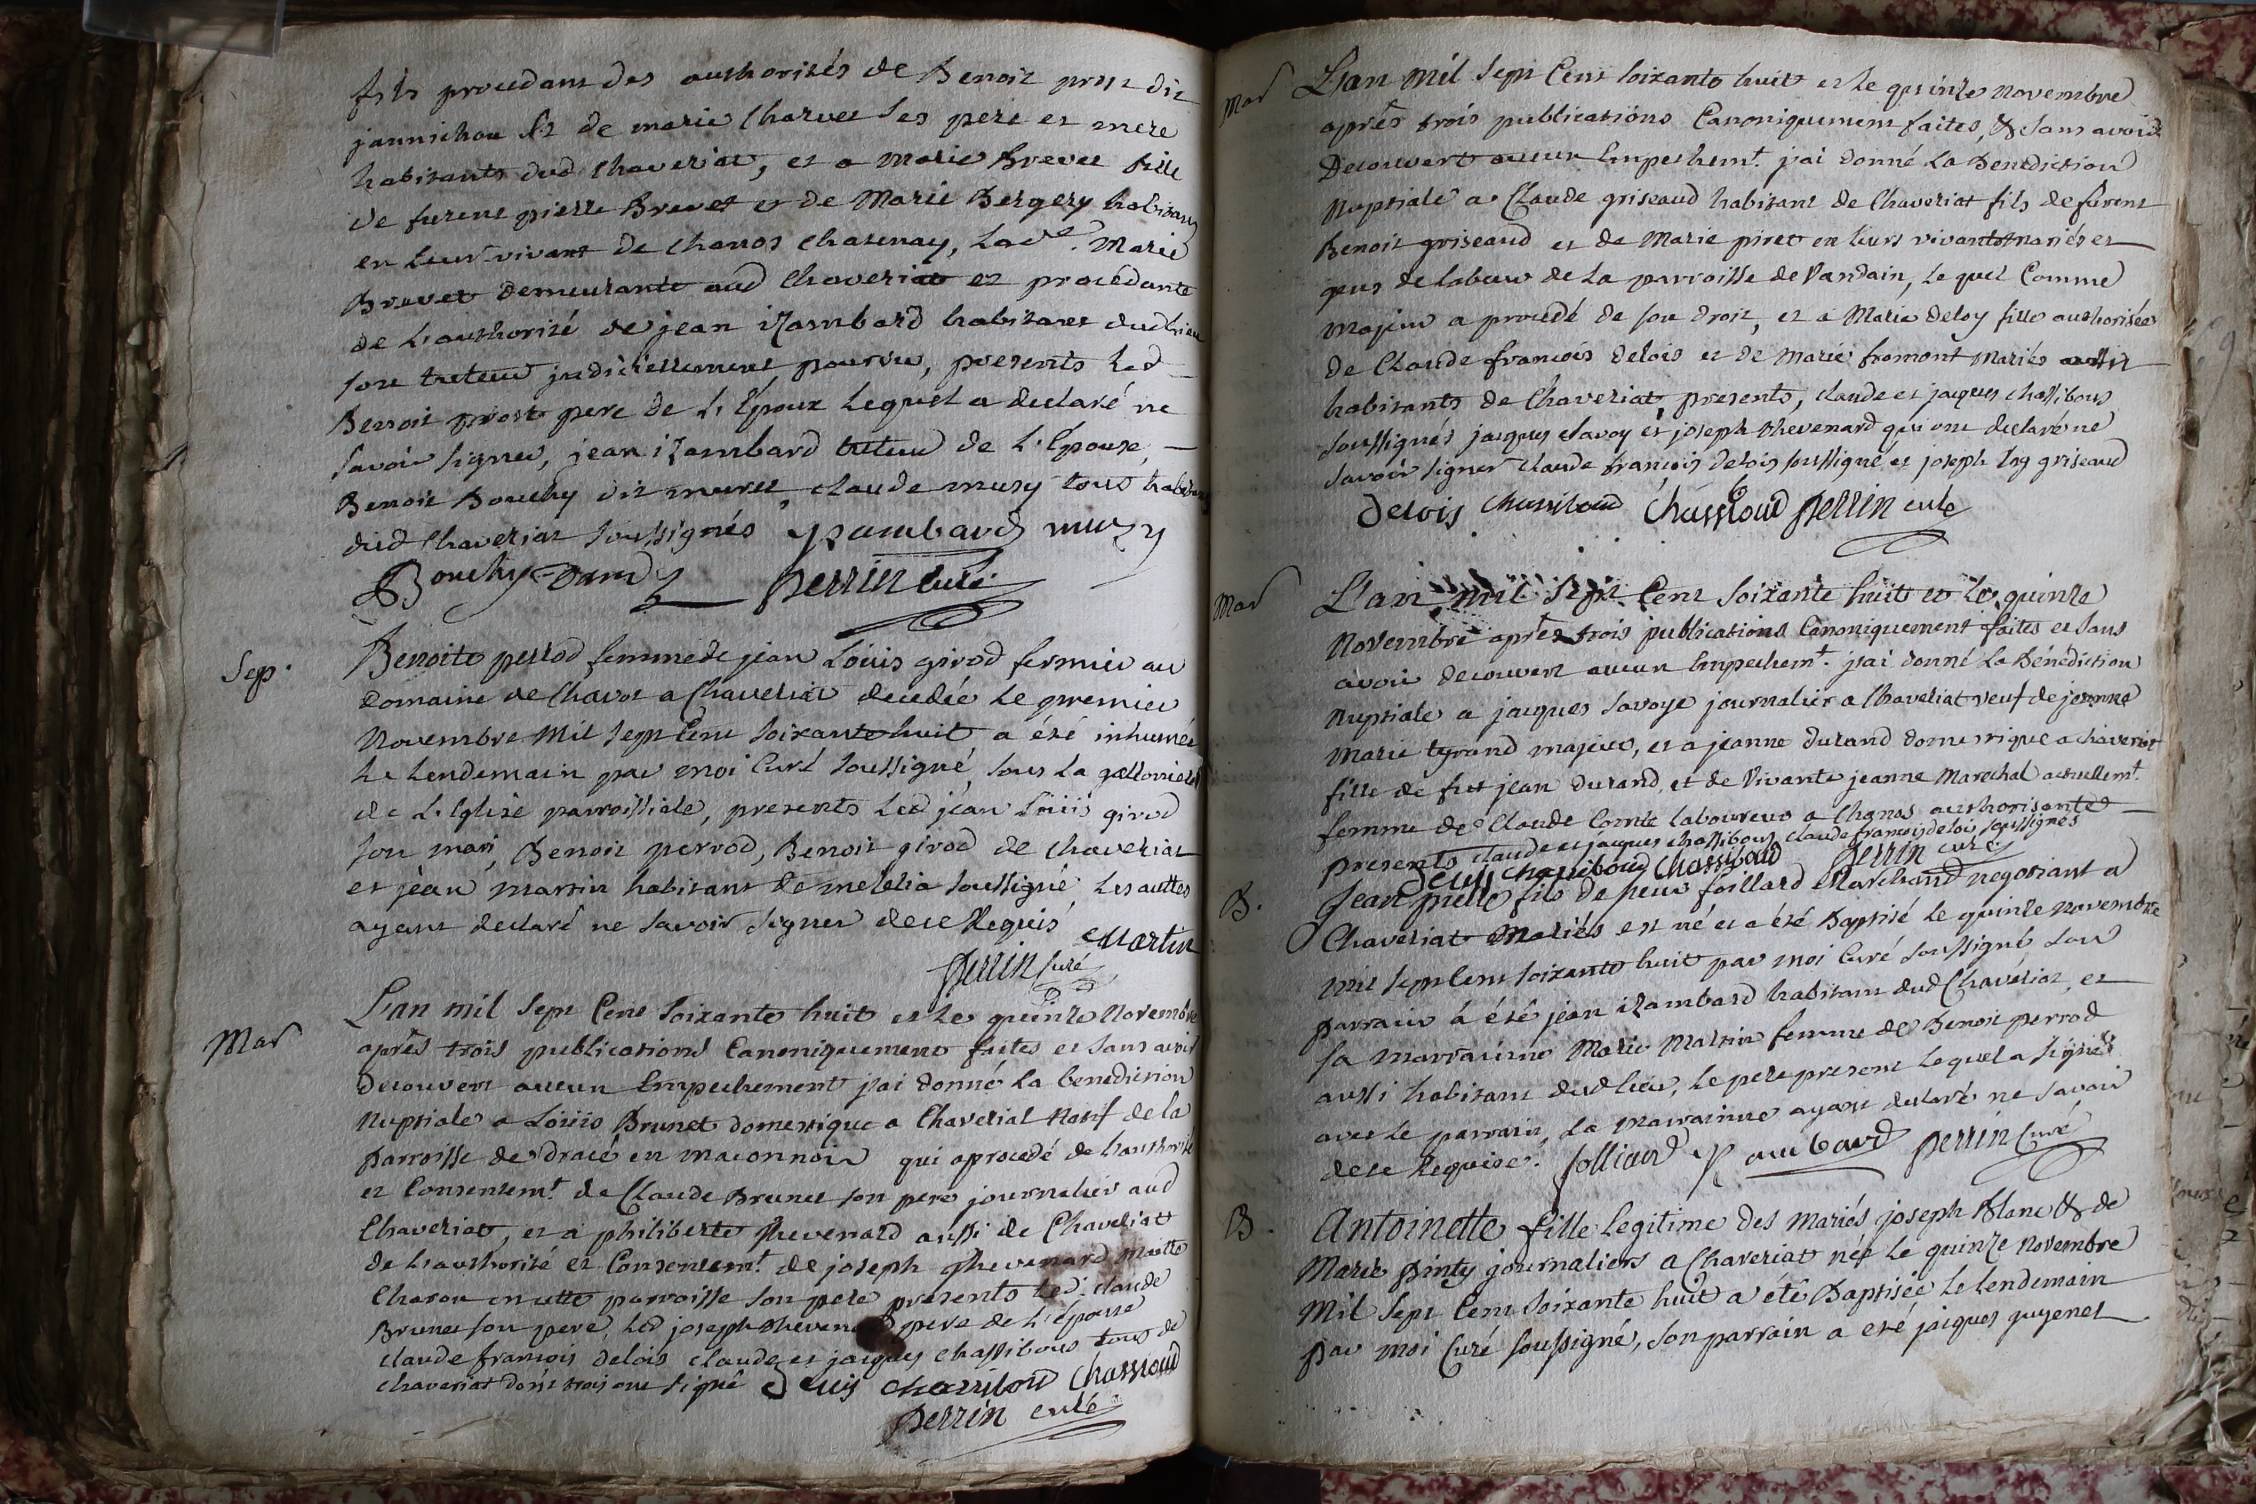 fils procedant des authorités de Benoit prost dit
jannichon et de marie Charvet ses pere et mere
habitants dud Chaveriat, et a Marie Brevet fille
de furent pierre Brevet et de Marie Bergery habitans
en leur vivant de Chanos Chatenay, lad.e Marie
Brevet demeurante aud Chaveriat et procédante
de l'authorité de jean izambard habitant dud lieu
son tuteur judiciellement pourvu, presents led
Benoit prost pere de l'Epoux lequel a declaré ne
savoir signer, jean izambard tuteur de l'Epouse,
Benoit Bouchy dit muret, claude musy tous habitans
dud Chaveriat soussignés Yzambard musy
Bouchy perrin curé
Sep.
Benoite perrod femme de jean Louis girod fermier au
domaine de Chavot a Chaveriat decedée le premier
Novembre Mil sept Cent soixante huit a été inhumée
le lendemain par moi Curé soussigné, sous la gallonniere
de l'Eglise parroissiale, presents led jean Loüis girod
son mari, Benoit perrod, Benoit girod de chaveriat
et jean martin habitant de mezeria soussigné, les autres
ayant declaré ne savoir signer de ce Requis Martin
perrin curé
Mar
L'an mil sept Cent soixante huit et le quinze Novembre
après trois publications Canoniquement faites et sans avoir
decouvert aucun Empechement j'ai donné la benediction
Nuptiale a Loüis Brunet domestique a Chaveriat Natif de la
parroisse de dracé en maconnois qui a procedé de l'authorité
et Consentem.t de Claude Brunet son pere journalier aud
Chaveriat, et a philiberte thevenard aussi de Chaveriat
de l'authorité et Consentem.t de joseph thevenard maitre
Charon en cette parroisse son pere presents led. claude
Brunet son pere, led joseph thevenard pere de l'épouse
claude françois delois claude et jacques chassibous tous de
chaveriat dont trois ont signé Delois chassiboud Chassiboud
perrin curé
Mar
L'an mil sept Cent soixante huit et le quinze novembre
après trois publications Canoniquement faites, & sans avoir
Decouvert aucun Empechem.t j'ai donné la Benediction
Nuptiale a Claude griseaud habitant de Chaveriat fils de furent
Benoit griseaud et de Marie piret en leurs vivants mariés et
gens de labeur de la parroisse de Vandain, le quel Comme
majeur a procedé de son droit, et a Marie deloy fille authorisée
de Claude françois delois et de Marie fromont Mariés aussi
habitants de Chaveriat, presents, claude et jacques chassibous
soussignés jacques savoy et joseph thevenard qui ont declaré ne
savoir signer claude françois delois soussigné et joseph griseaud
Delois chassiboud Chassiboud perrin curé
Mar
L'an mil sept Cent soixante huit et le quinze
Novembre après trois publications Canoniquement faites et sans
avoir decouvert aucun Empechem.t j'ai donné la Bénédiction
Nuptiale a jacques Savoye journalier a Chaveriat veuf de jeanne
Marie tyrand majeur, et a jeanne durand domestique a chaveriat
fille de fut jean durand, et de Vivante jeanne Marechal actuellem.t
femme de Claude Comte laboureur a Chanos authorisante
presents claude et jacques chassibous claude françois delois soussignés
Delois chassiboud Chassiboud perrin curé
B.
Jean pierre fils de foillard Marchand negotiant a
Chaveriat Mariés est né et a été Baptisé le quinze novembre
mil sept Cent soixante huit par moi Curé soussigné son
parrain a été jean izambard habitant dud Chavériat, et
sa marrainne Marie Martin femme de Benoit perrod
aussi habitant dud lieu, le pere present lequel a signé
avec le parrain, la marrainne ayant declaré ne savoir
de ce Requise. folliard Yzambard perrin Curé
B.
Antoinette fille legitime des mariés joseph Blanc & de
Marie pinty journaliers a Chaveriat née le quinze novembre
Mil sept Cent soixante huit a été Baptisée le lendemain
par moi Curé soussigné, son parrain a été jacques guyenet